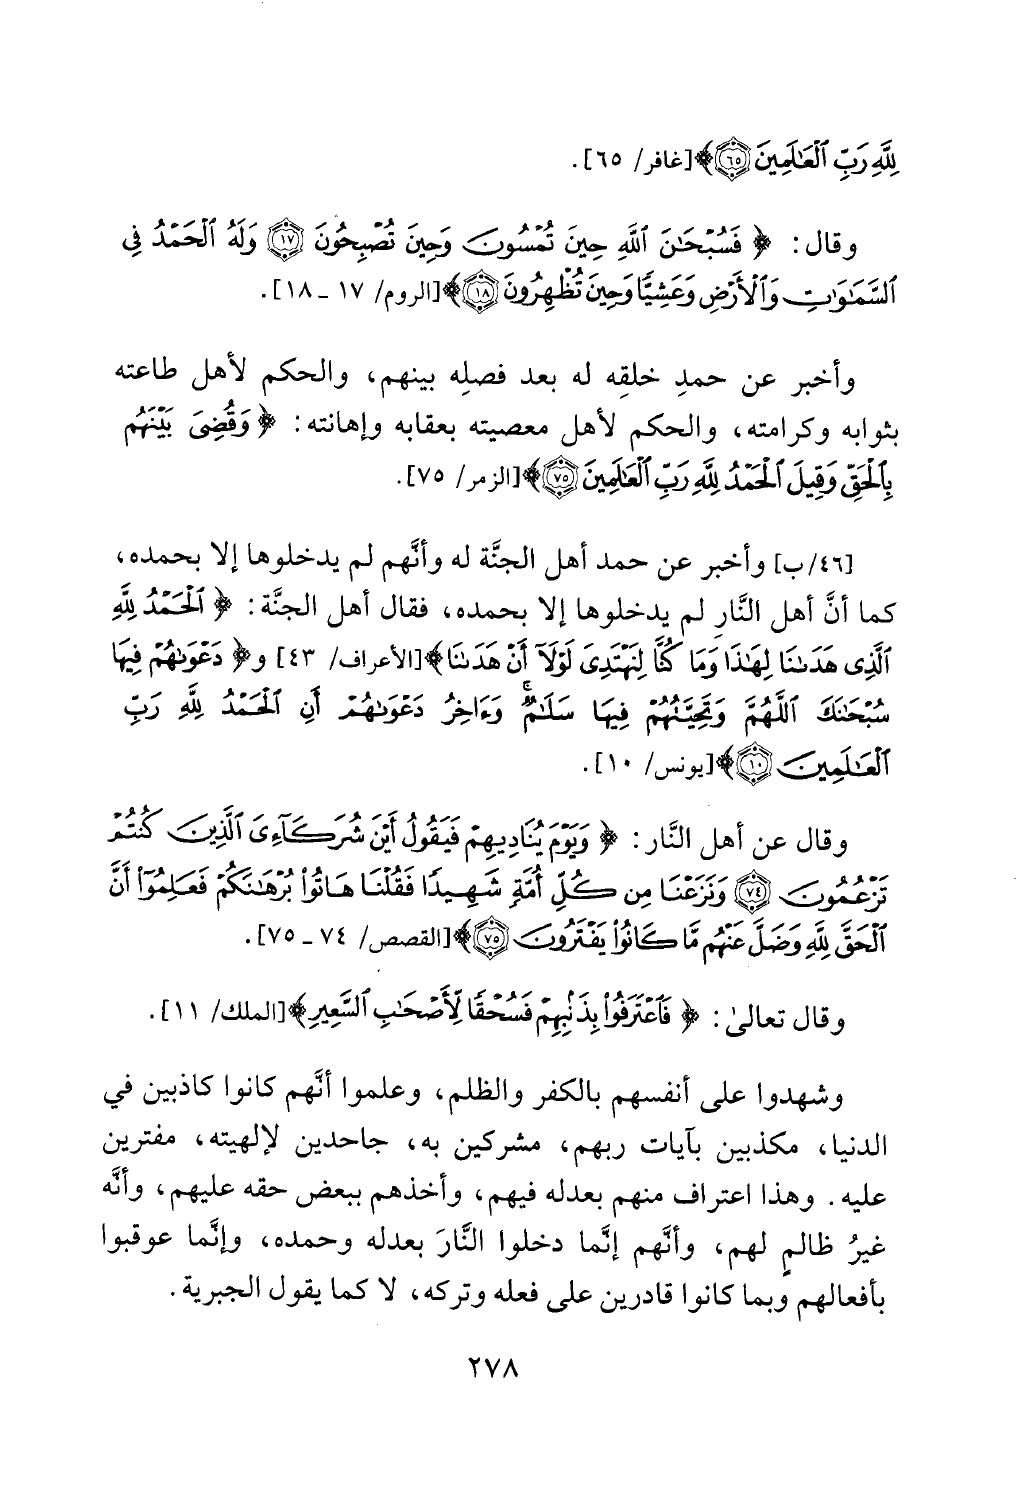 لِلَّهِ رَبِّ ٱلْعَٰلَمِينَ ٦٥﴾ [غافر/ ٦٥].
وقال: ﴿فَسُبْحَٰنَ ٱللَّهِ حِينَ تُمْسُونَ وَحِينَ تُصْبِحُونَ ١٧ وَلَهُ ٱلْحَمْدُ فِى
ٱلسَّمَٰوَٰتِ وَٱلْأَرْضِ وَعَشِيًّا وَحِينَ تُظْهِرُونَ ١٨﴾ [الروم/ ١٧ ـ ١٨].
وأخبر عن حمدِ خلقِه له بعد فصلِه بينهم، والحكم لأهل طاعته
بثوابه وكرامته، والحكم لأهل معصيته بعقابه وإهانته: ﴿وَقُضِىَ بَيْنَهُم
بِٱلْحَقِّ وَقِيلَ ٱلْحَمْدُ لِلَّهِ رَبِّ ٱلْعَٰلَمِينَ ٧٥﴾ [الزمر/ ٧٥].
[٤٦/ب] وأخبر عن حمد أهل الجنَّة له وأنَّهم لم يدخلوها إلا بحمده،
كما أنَّ أهل النَّارِ لم يدخلوها إلا بحمده، فقال أهل الجنَّة: ﴿ٱلْحَمْدُ لِلَّهِ
ٱلَّذِى هَدَىٰنَا لِهَٰذَا وَمَا كُنَّا لِنَهْتَدِىَ لَوْلَآ أَنْ هَدَىٰنَا﴾ [الأعراف/ ٤٣] و﴿دَعْوَىٰهُمْ فِيهَا
سُبْحَٰنَكَ ٱللَّهُمَّ وَتَحِيَّتُهُمْ فِيهَا سَلَٰمٌ ۚ وَءَاخِرُ دَعْوَىٰهُمْ أَنِ ٱلْحَمْدُ لِلَّهِ رَبِّ
ٱلْعَٰلَمِينَ ١٠﴾ [يونس/ ١٠].
وقال عن أهل النَّار: ﴿وَيَوْمَ يُنَادِيهِمْ فَيَقُولُ أَيْنَ شُرَكَآءِىَ ٱلَّذِينَ كُنتُمْ
تَزْعُمُونَ ٧٤ وَنَزَعْنَا مِن كُلِّ أُمَّةٍ شَهِيدًا فَقُلْنَا هَاتُوا۟ بُرْهَٰنَكُمْ فَعَلِمُوٓا۟ أَنَّ
ٱلْحَقَّ لِلَّهِ وَضَلَّ عَنْهُم مَّا كَانُوا۟ يَفْتَرُونَ ٧٥﴾ [القصص/ ٧٤ ـ ٧٥].
وقال تعالىٰ: ﴿فَٱعْتَرَفُوا۟ بِذَنۢبِهِمْ فَسُحْقًا لِّأَصْحَٰبِ ٱلسَّعِيرِ﴾ [الملك/ ١١].
وشهدوا على أنفسهم بالكفر والظلم، وعلموا أنَّهم كانوا كاذبين في
الدنيا، مكذبين بآيات ربهم، مشركين به، جاحدين لإلهيته، مفترين
عليه. وهذا اعتراف منهم بعدله فيهم، وأخذهم ببعض حقه عليهم، وأنَّه
غيرُ ظالمٍ لهم، وأنَّهم إنَّما دخلوا النَّارَ بعدله وحمده، وإنَّما عوقبوا
بأفعالهم وبما كانوا قادرين على فعله وتركه، لا كما يقول الجبرية.
٢٧٨